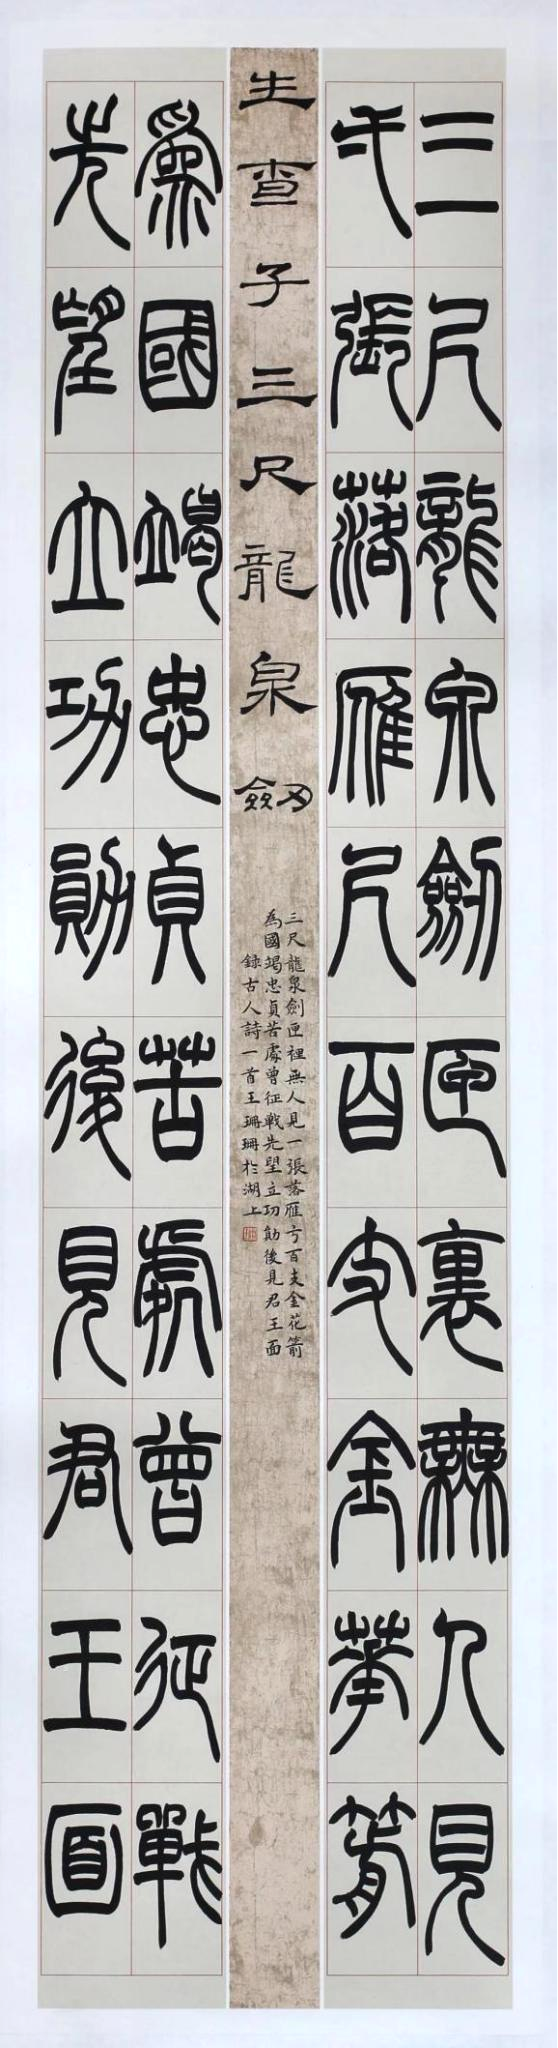 三尺龍泉劍匣裏無人見
弌張落雁弓百支金華箭
生查子三尺龍泉劒
三尺龍泉劍匣裡無人見一張落雁弓百支金花箭
為國竭忠貞苦處曾征戰先望立功勛後見君王面
録古人詩一首王珊珊於湖上
爲國竭忠貞苦處曾征戰
先望立功勛後見君王面